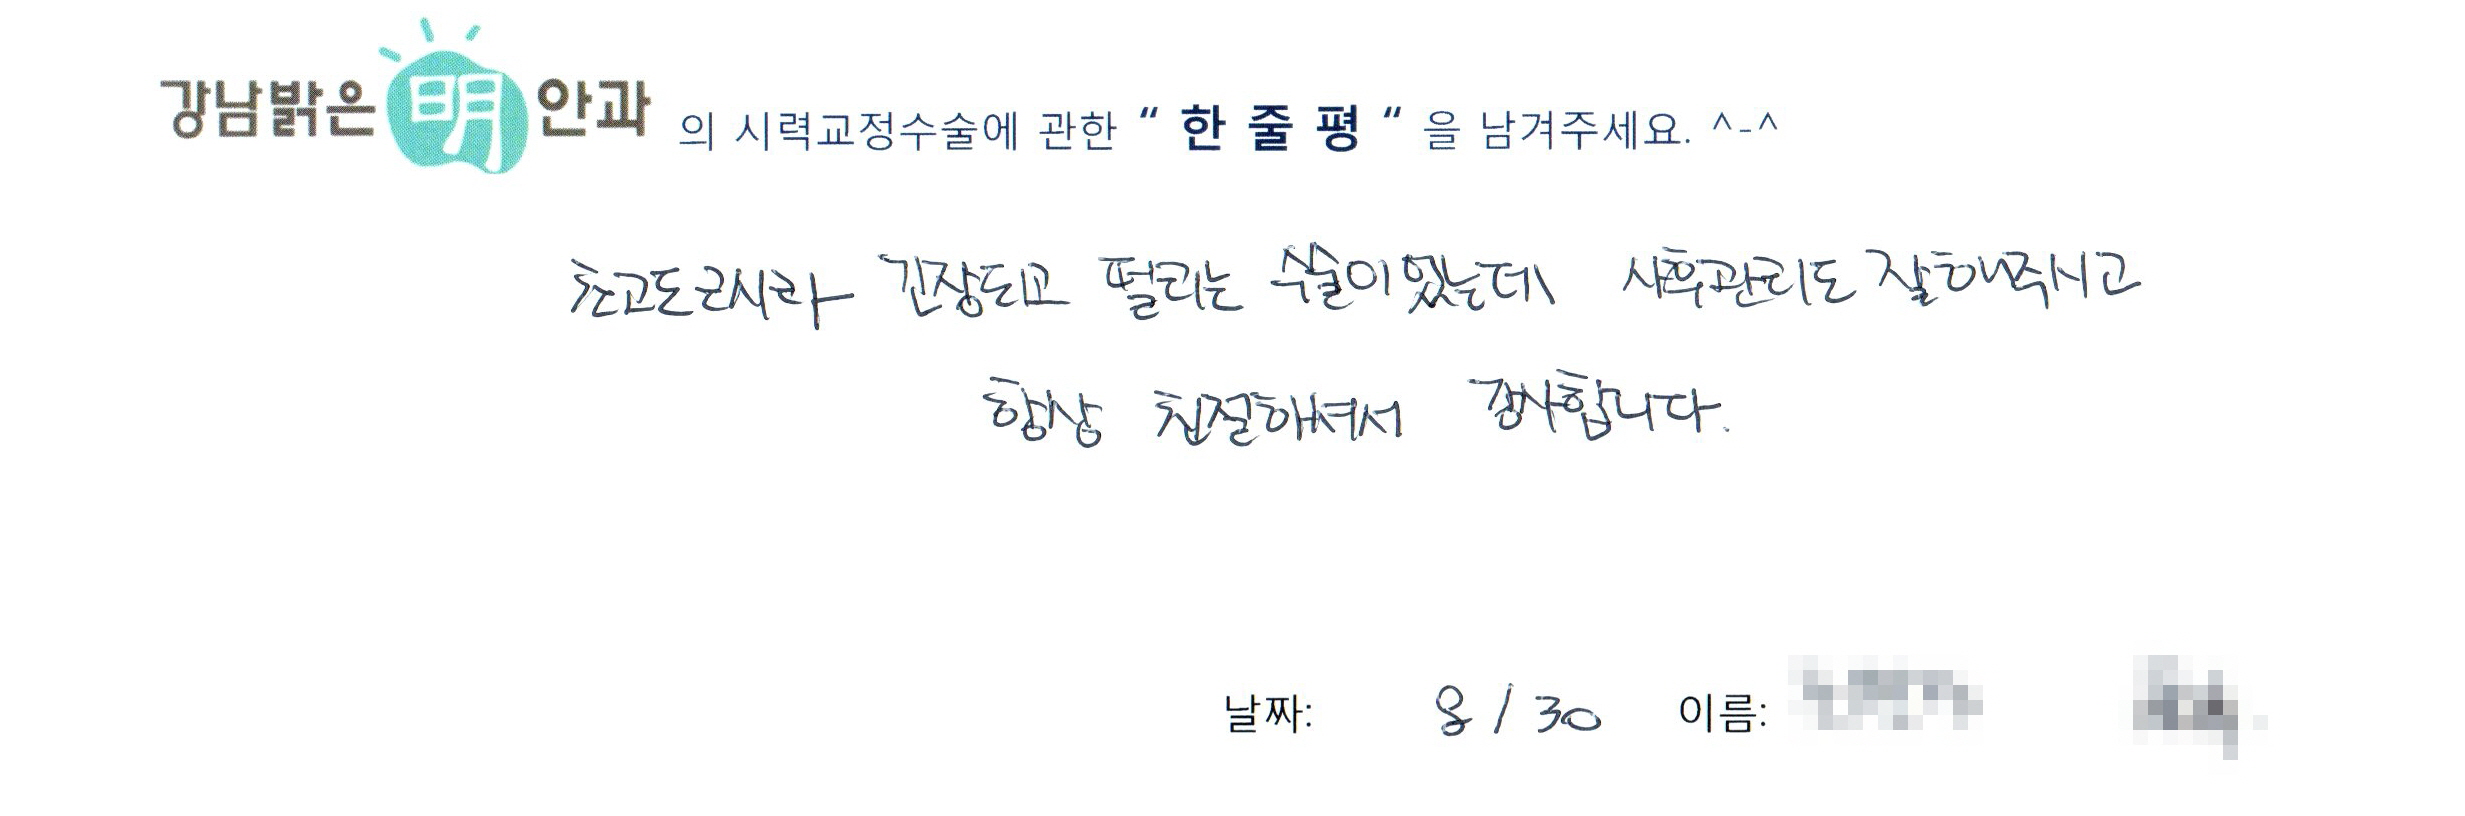 강남밝은 明 안과 의 시력교정수술에 관한 “ 한 줄 평 “ 을 남겨주세요. ^-^
초고도근시라 긴장되고 떨리는 수술이었는데 사후관리도 잘해주시고
항상 친절해셔서 감사합니다.
날짜: 8 / 30 이름: